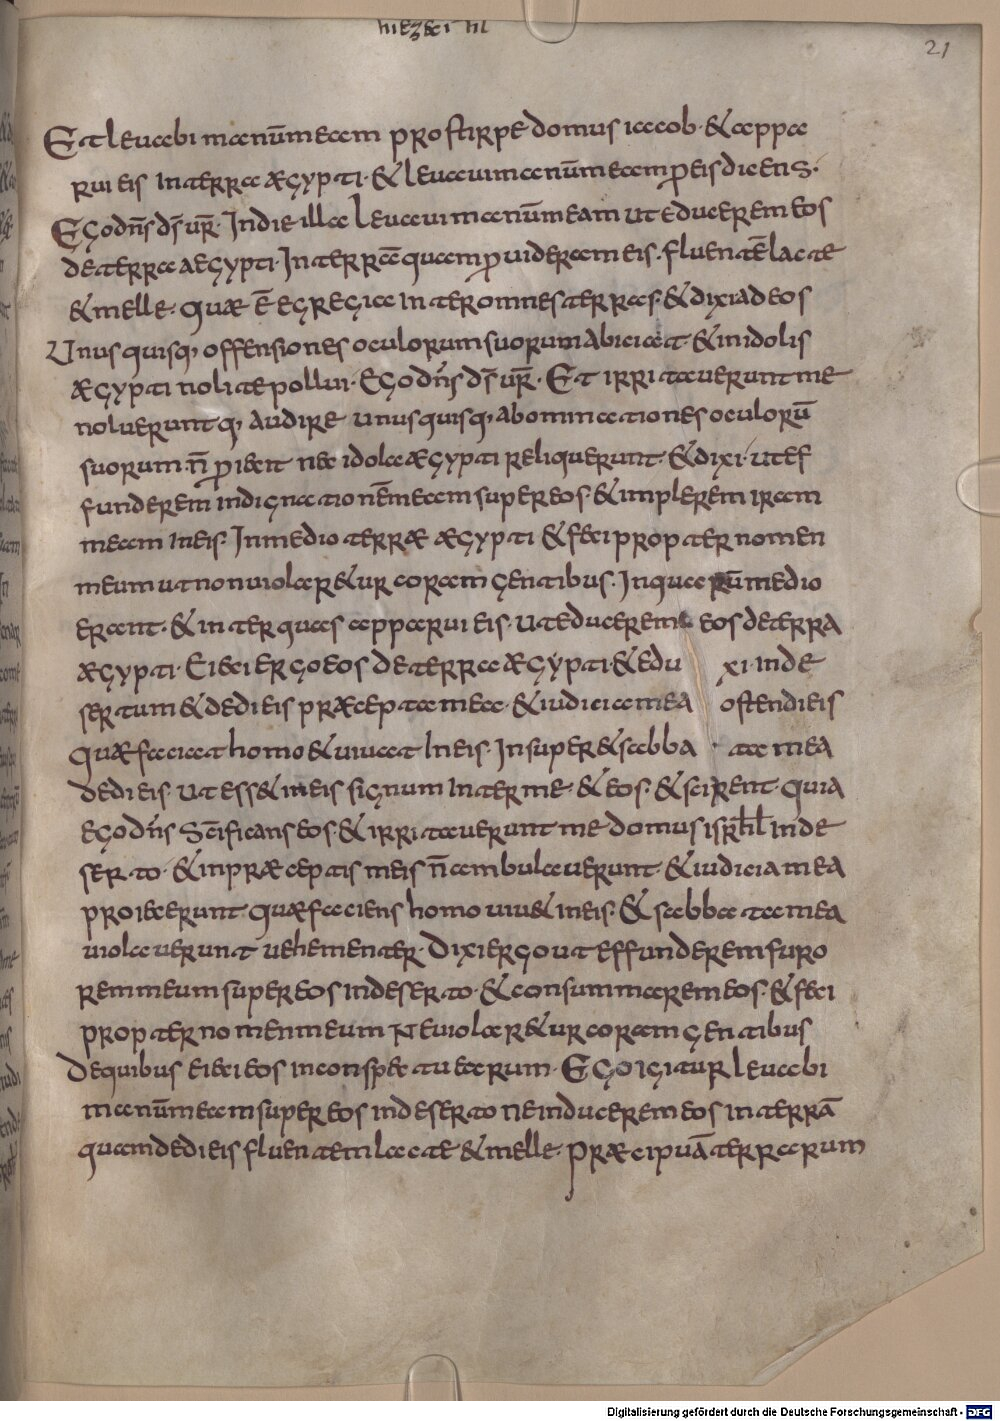 hiezeci hl
21
Et leuabi manū meam pro stirpe domus iacob · & appa
rui eis in terra ægypti · & leuaui manū meam p eis dicens ·
Ego dn̄s ds̄ ur̄ · In die illa leuaui manū meam ut educerem eos
de terra aegypti · In terrā quam puideram eis · fluentē lacte
& melle · quæ ē egregia inter omnes terras · & dixi ad eos
Unusquisq; offensiones oculorum suorum abiciat · & in idolis
ægypti nolite pollui · Ego dn̄s ds̄ ur̄ · Et irritauerunt me
nolueruntq; audire unusquisq; abominationes oculorū
suorum n̄ piecit nec idola ægypti reliquerunt · & dixi · ut ef
funderem indignationēmeam super eos · & implerem iram
meam in eis · In medio terræ ægypti & feci propter nomen
meum ut non uiolar&ur coram gentibus · In quarū medio
erant · & inter quas apparui eis · ut educerem eos de terra
ægypti · Eieci ergo eos de terra ægypti · & edu xi in de
sertum & dedi eis præcepta mea · & iudicia mea ostendi eis
Quæ faciat homo & uiuat in eis · Insuper & sabba · ta mea
dedi eis · ut ess& in eis signum inter me · & eos · & scirent · quia
ego dn̄s sc̄ificans eos · & irritauerunt me domus isrl̄ in de
serto · & in præceptis meis n̄ ambulauerunt · & iudicia mea
proiecerunt · quæ faciens homo uiu& in eis · & sabbata mea
uiolauerunt uehementer · Dixi ergo ut effunderem furo
rem meum super eos in deserto · & consummarem eos · & feci
propter nomen meum ne uiolar&ur coram gentibus
De quibus eieci eos in conspectu earum · Ego igitur leuabi
manū meam super eos in deserto ne inducerem eos in terrā
quam dedi eis fluentem lacte & melle · præcipuā terrarum
Digitalisierung gefördert durch die Deutsche Forschungsgemeinschaft - DFG